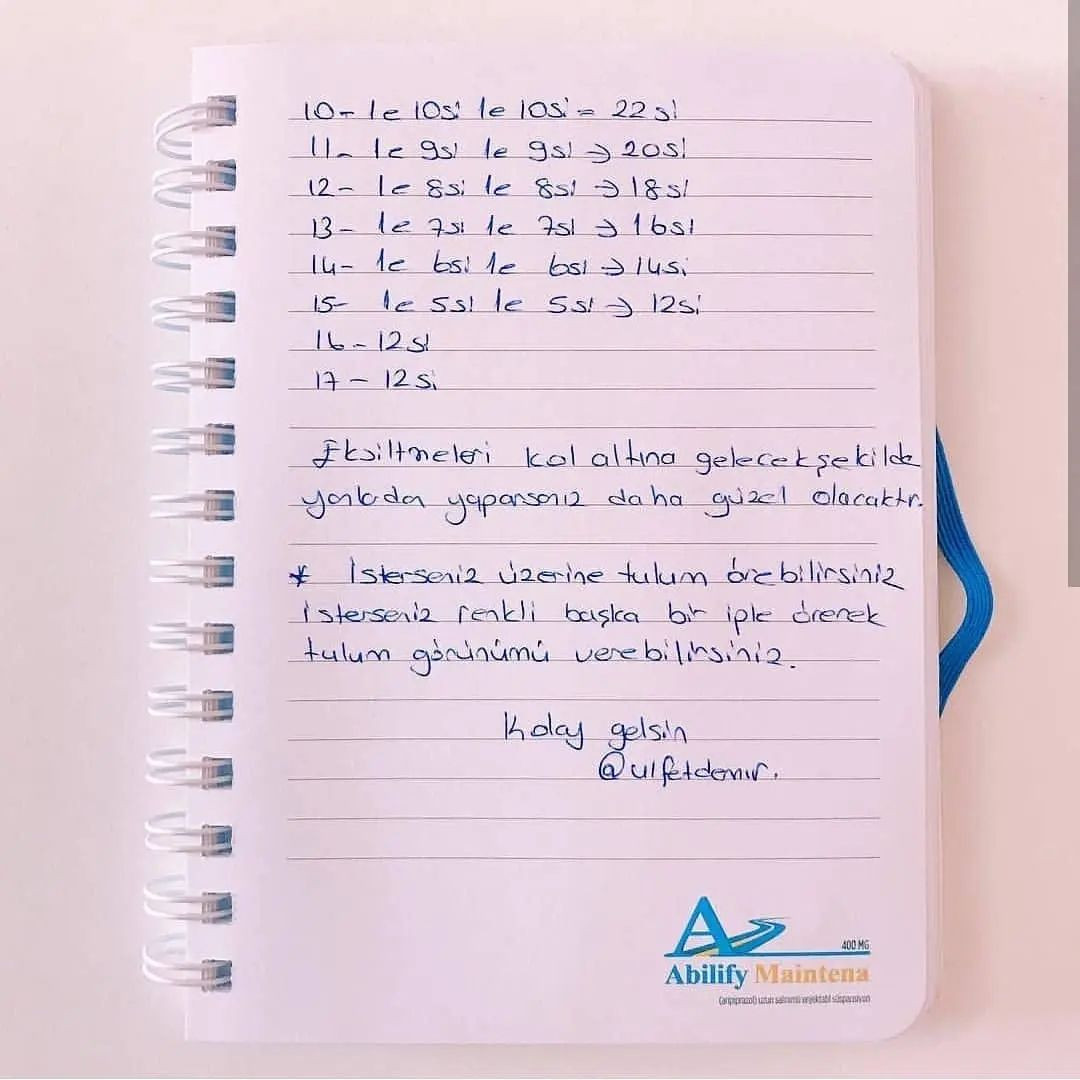 10- 1e 10si 1e 10si = 22 si
11- 1e 9si 1e 9si → 20si
12- 1e 8si 1e 8si → 18si
13- 1e 7si 1e 7si → 16si
14- 1e 6si 1e 6si → 14si
15- 1e 5si 1e 5si → 12si
16 - 12 si
17 - 12 si
Eksiltmeleri kol altına gelecek şekilde
yanlardan yaparsanız daha güzel olacaktır.
* İsterseniz üzerine tulum örebilirsiniz
isterseniz renkli başka bir iple örerek
tulum görünümü verebilirsiniz.
Kolay gelsin
@ulfetdemir.
A
400 MG
Abilify Maintena
(aripiprazol) uzun salımlı enjektabl süspansiyon